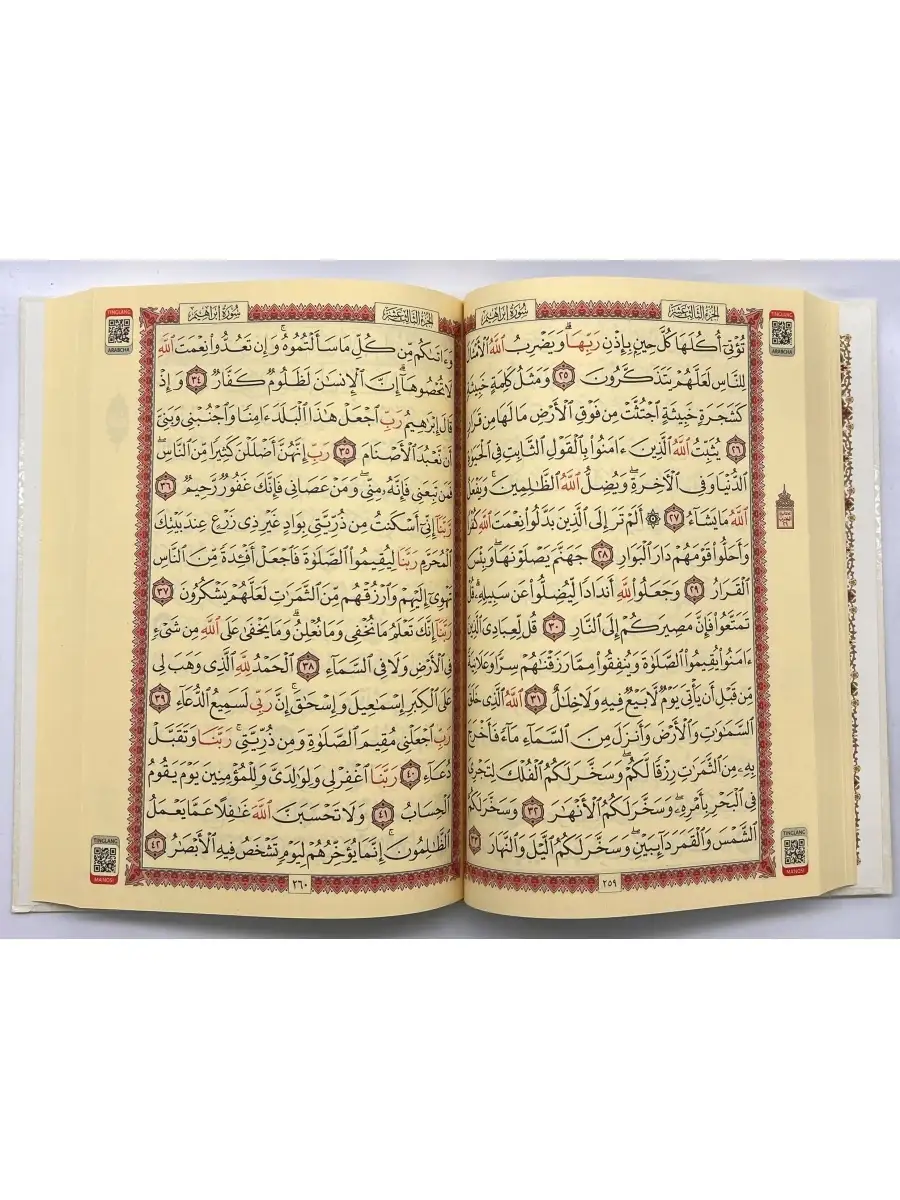 الجُزْءُ الثَّالِثَ عَشَرَ سُورَةُ إِبْرَاهِيمَ
TINGLANG
ARABCHA
تُؤْتِىٓ أُكُلَهَا كُلَّ حِينٍۭ بِإِذْنِ رَبِّهَاۗ وَيَضْرِبُ ٱللَّهُ
لِلنَّاسِ لَعَلَّهُمْ يَتَذَكَّرُونَ ٢٥ وَمَثَلُ كَلِمَةٍ
كَشَجَرَةٍ خَبِيثَةٍ ٱجْتُثَّتْ مِن فَوْقِ ٱلْأَرْضِ مَا لَهَا مِن
٢٦ يُثَبِّتُ ٱللَّهُ ٱلَّذِينَ ءَامَنُوا۟ بِٱلْقَوْلِ ٱلثَّابِتِ فِى
ٱلدُّنْيَا وَفِى ٱلْءَاخِرَةِۖ وَيُضِلُّ ٱللَّهُ ٱلظَّٰلِمِينَۚ وَيَفْعَلُ
ٱللَّهُ مَا يَشَآءُ ٢٧ ۞ أَلَمْ تَرَ إِلَى ٱلَّذِينَ بَدَّلُوا۟ نِعْمَتَ ٱللَّهِ
وَأَحَلُّوا۟ قَوْمَهُمْ دَارَ ٱلْبَوَارِ ٢٨ جَهَنَّمَ يَصْلَوْنَهَاۖ وَبِئْسَ
ٱلْقَرَارُ ٢٩ وَجَعَلُوا۟ لِلَّهِ أَندَادًا لِّيُضِلُّوا۟ عَن سَبِيلِهِۦۗ قُلْ
تَمَتَّعُوا۟ فَإِنَّ مَصِيرَكُمْ إِلَى ٱلنَّارِ ٣٠ قُل لِّعِبَادِىَ
ءَامَنُوا۟ يُقِيمُوا۟ ٱلصَّلَوٰةَ وَيُنفِقُوا۟ مِمَّا رَزَقْنَٰهُمْ سِرًّا وَعَلَانِيَةً
مِّن قَبْلِ أَن يَأْتِىَ يَوْمٌ لَّا بَيْعٌ فِيهِ وَلَا خِلَٰلٌ ٣١ ٱللَّهُ ٱلَّذِى خَلَقَ
ٱلسَّمَٰوَٰتِ وَٱلْأَرْضَ وَأَنزَلَ مِنَ ٱلسَّمَآءِ مَآءً فَأَخْرَجَ
بِهِۦ مِنَ ٱلثَّمَرَٰتِ رِزْقًا لَّكُمْۖ وَسَخَّرَ لَكُمُ ٱلْفُلْكَ لِتَجْرِىَ
فِى ٱلْبَحْرِ بِأَمْرِهِۦۖ وَسَخَّرَ لَكُمُ ٱلْأَنْهَٰرَ ٣٢ وَسَخَّرَ لَكُمُ
ٱلشَّمْسَ وَٱلْقَمَرَ دَآئِبَيْنِۖ وَسَخَّرَ لَكُمُ ٱلَّيْلَ وَٱلنَّهَارَ ٣٣
TINGLANG
MA'NOSI
٢٥٩
الجُزْءُ الثَّالِثَ عَشَرَ سُورَةُ إِبْرَاهِيمَ
TINGLANG
ARABCHA
وَءَاتَىٰكُم مِّن كُلِّ مَا سَأَلْتُمُوهُۚ وَإِن تَعُدُّوا۟ نِعْمَتَ ٱللَّهِ
لَا تُحْصُوهَآۗ إِنَّ ٱلْإِنسَٰنَ لَظَلُومٌ كَفَّارٌ ٣٤ وَإِذْ
قَالَ إِبْرَٰهِيمُ رَبِّ ٱجْعَلْ هَٰذَا ٱلْبَلَدَ ءَامِنًا وَٱجْنُبْنِى وَبَنِىَّ
أَن نَّعْبُدَ ٱلْأَصْنَامَ ٣٥ رَبِّ إِنَّهُنَّ أَضْلَلْنَ كَثِيرًا مِّنَ ٱلنَّاسِۖ
فَمَن تَبِعَنِى فَإِنَّهُۥ مِنِّىۖ وَمَنْ عَصَانِى فَإِنَّكَ غَفُورٌ رَّحِيمٌ ٣٦
رَّبَّنَآ إِنِّىٓ أَسْكَنتُ مِن ذُرِّيَّتِى بِوَادٍ غَيْرِ ذِى زَرْعٍ عِندَ بَيْتِكَ
ٱلْمُحَرَّمِ رَبَّنَا لِيُقِيمُوا۟ ٱلصَّلَوٰةَ فَٱجْعَلْ أَفْـِٔدَةً مِّنَ ٱلنَّاسِ
تَهْوِىٓ إِلَيْهِمْ وَٱرْزُقْهُم مِّنَ ٱلثَّمَرَٰتِ لَعَلَّهُمْ يَشْكُرُونَ ٣٧
رَبَّنَآ إِنَّكَ تَعْلَمُ مَا نُخْفِى وَمَا نُعْلِنُۗ وَمَا يَخْفَىٰ عَلَى ٱللَّهِ مِن شَىْءٍ
فِى ٱلْأَرْضِ وَلَا فِى ٱلسَّمَآءِ ٣٨ ٱلْحَمْدُ لِلَّهِ ٱلَّذِى وَهَبَ لِى
عَلَى ٱلْكِبَرِ إِسْمَٰعِيلَ وَإِسْحَٰقَۚ إِنَّ رَبِّى لَسَمِيعُ ٱلدُّعَآءِ ٣٩
رَبِّ ٱجْعَلْنِى مُقِيمَ ٱلصَّلَوٰةِ وَمِن ذُرِّيَّتِىۚ رَبَّنَا وَتَقَبَّلْ
دُعَآءِ ٤٠ رَبَّنَا ٱغْفِرْ لِى وَلِوَٰلِدَىَّ وَلِلْمُؤْمِنِينَ يَوْمَ يَقُومُ
ٱلْحِسَابُ ٤١ وَلَا تَحْسَبَنَّ ٱللَّهَ غَٰفِلًا عَمَّا يَعْمَلُ
ٱلظَّٰلِمُونَۚ إِنَّمَا يُؤَخِّرُهُمْ لِيَوْمٍ تَشْخَصُ فِيهِ ٱلْأَبْصَٰرُ ٤٢
TINGLANG
MA'NOSI
٢٦٠